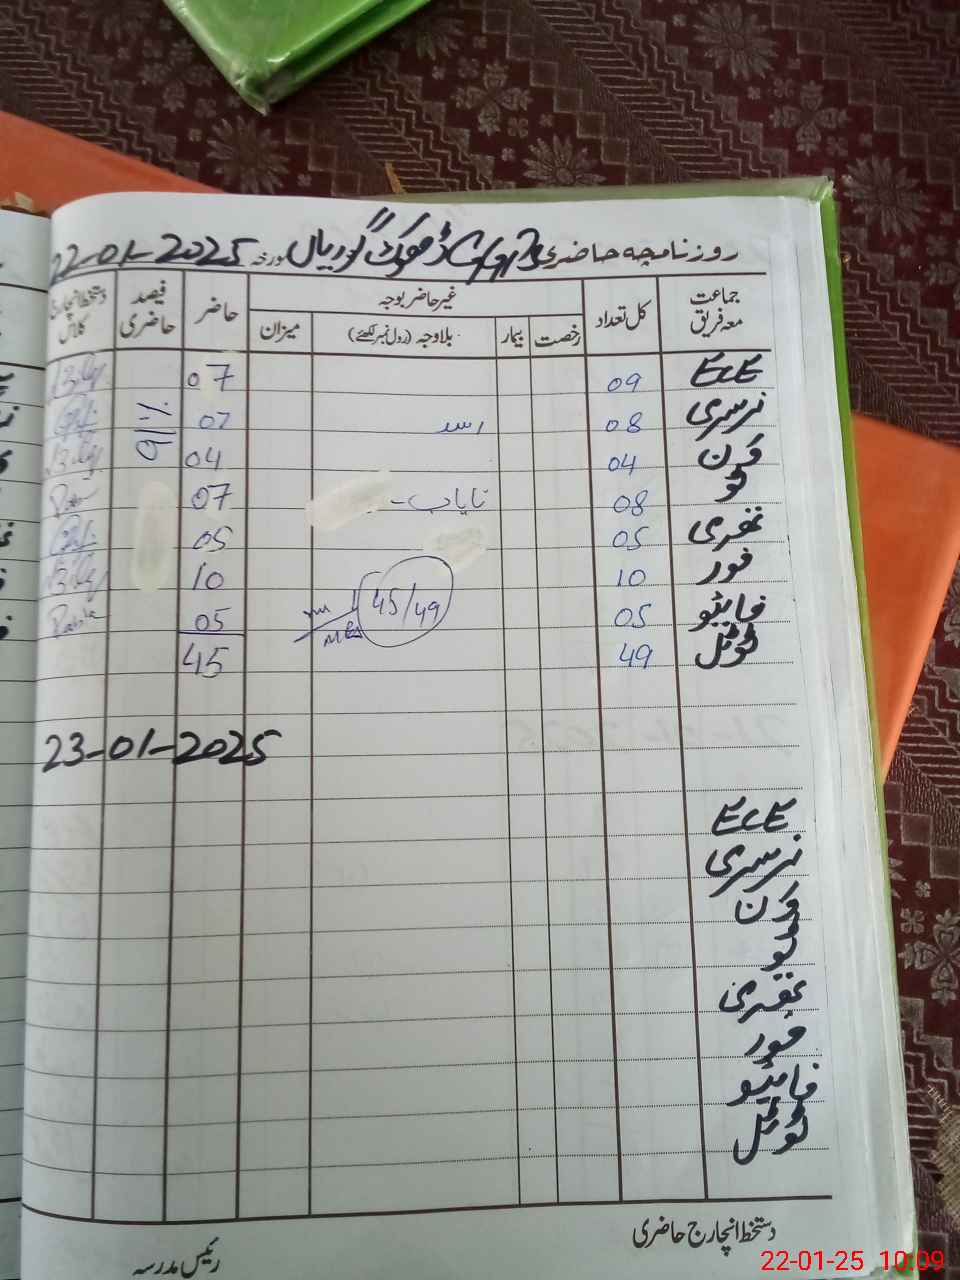 روزنامچہ حاضری GGPS ڈھوک گوریاں مورخہ 22-01-2025
جماعت معہ فریق کل تعداد غیر حاضر بوجہ حاضر فیصد حاضری دستخط انچارج کلاس
رخصت بیمار بلاوجہ (رول نمبر لکھئے) میزان
ECE 09 07
نرسری 08 اسد 07 91%
ون 04 04
ٹو 08 نایاب- 07
تھری 05 05
فور 10 10
فائیو 05 45/49 05
ٹوٹل 49 45
23-01-2025
ECE
نرسری
ون
ٹو
تھری
فور
فائیو
ٹوٹل
دستخط انچارج حاضری
رئیس مدرسہ
22-01-25 10:09